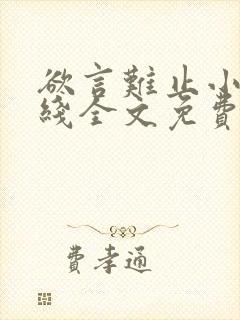 欲言難止小
綫全文免費
費孝通